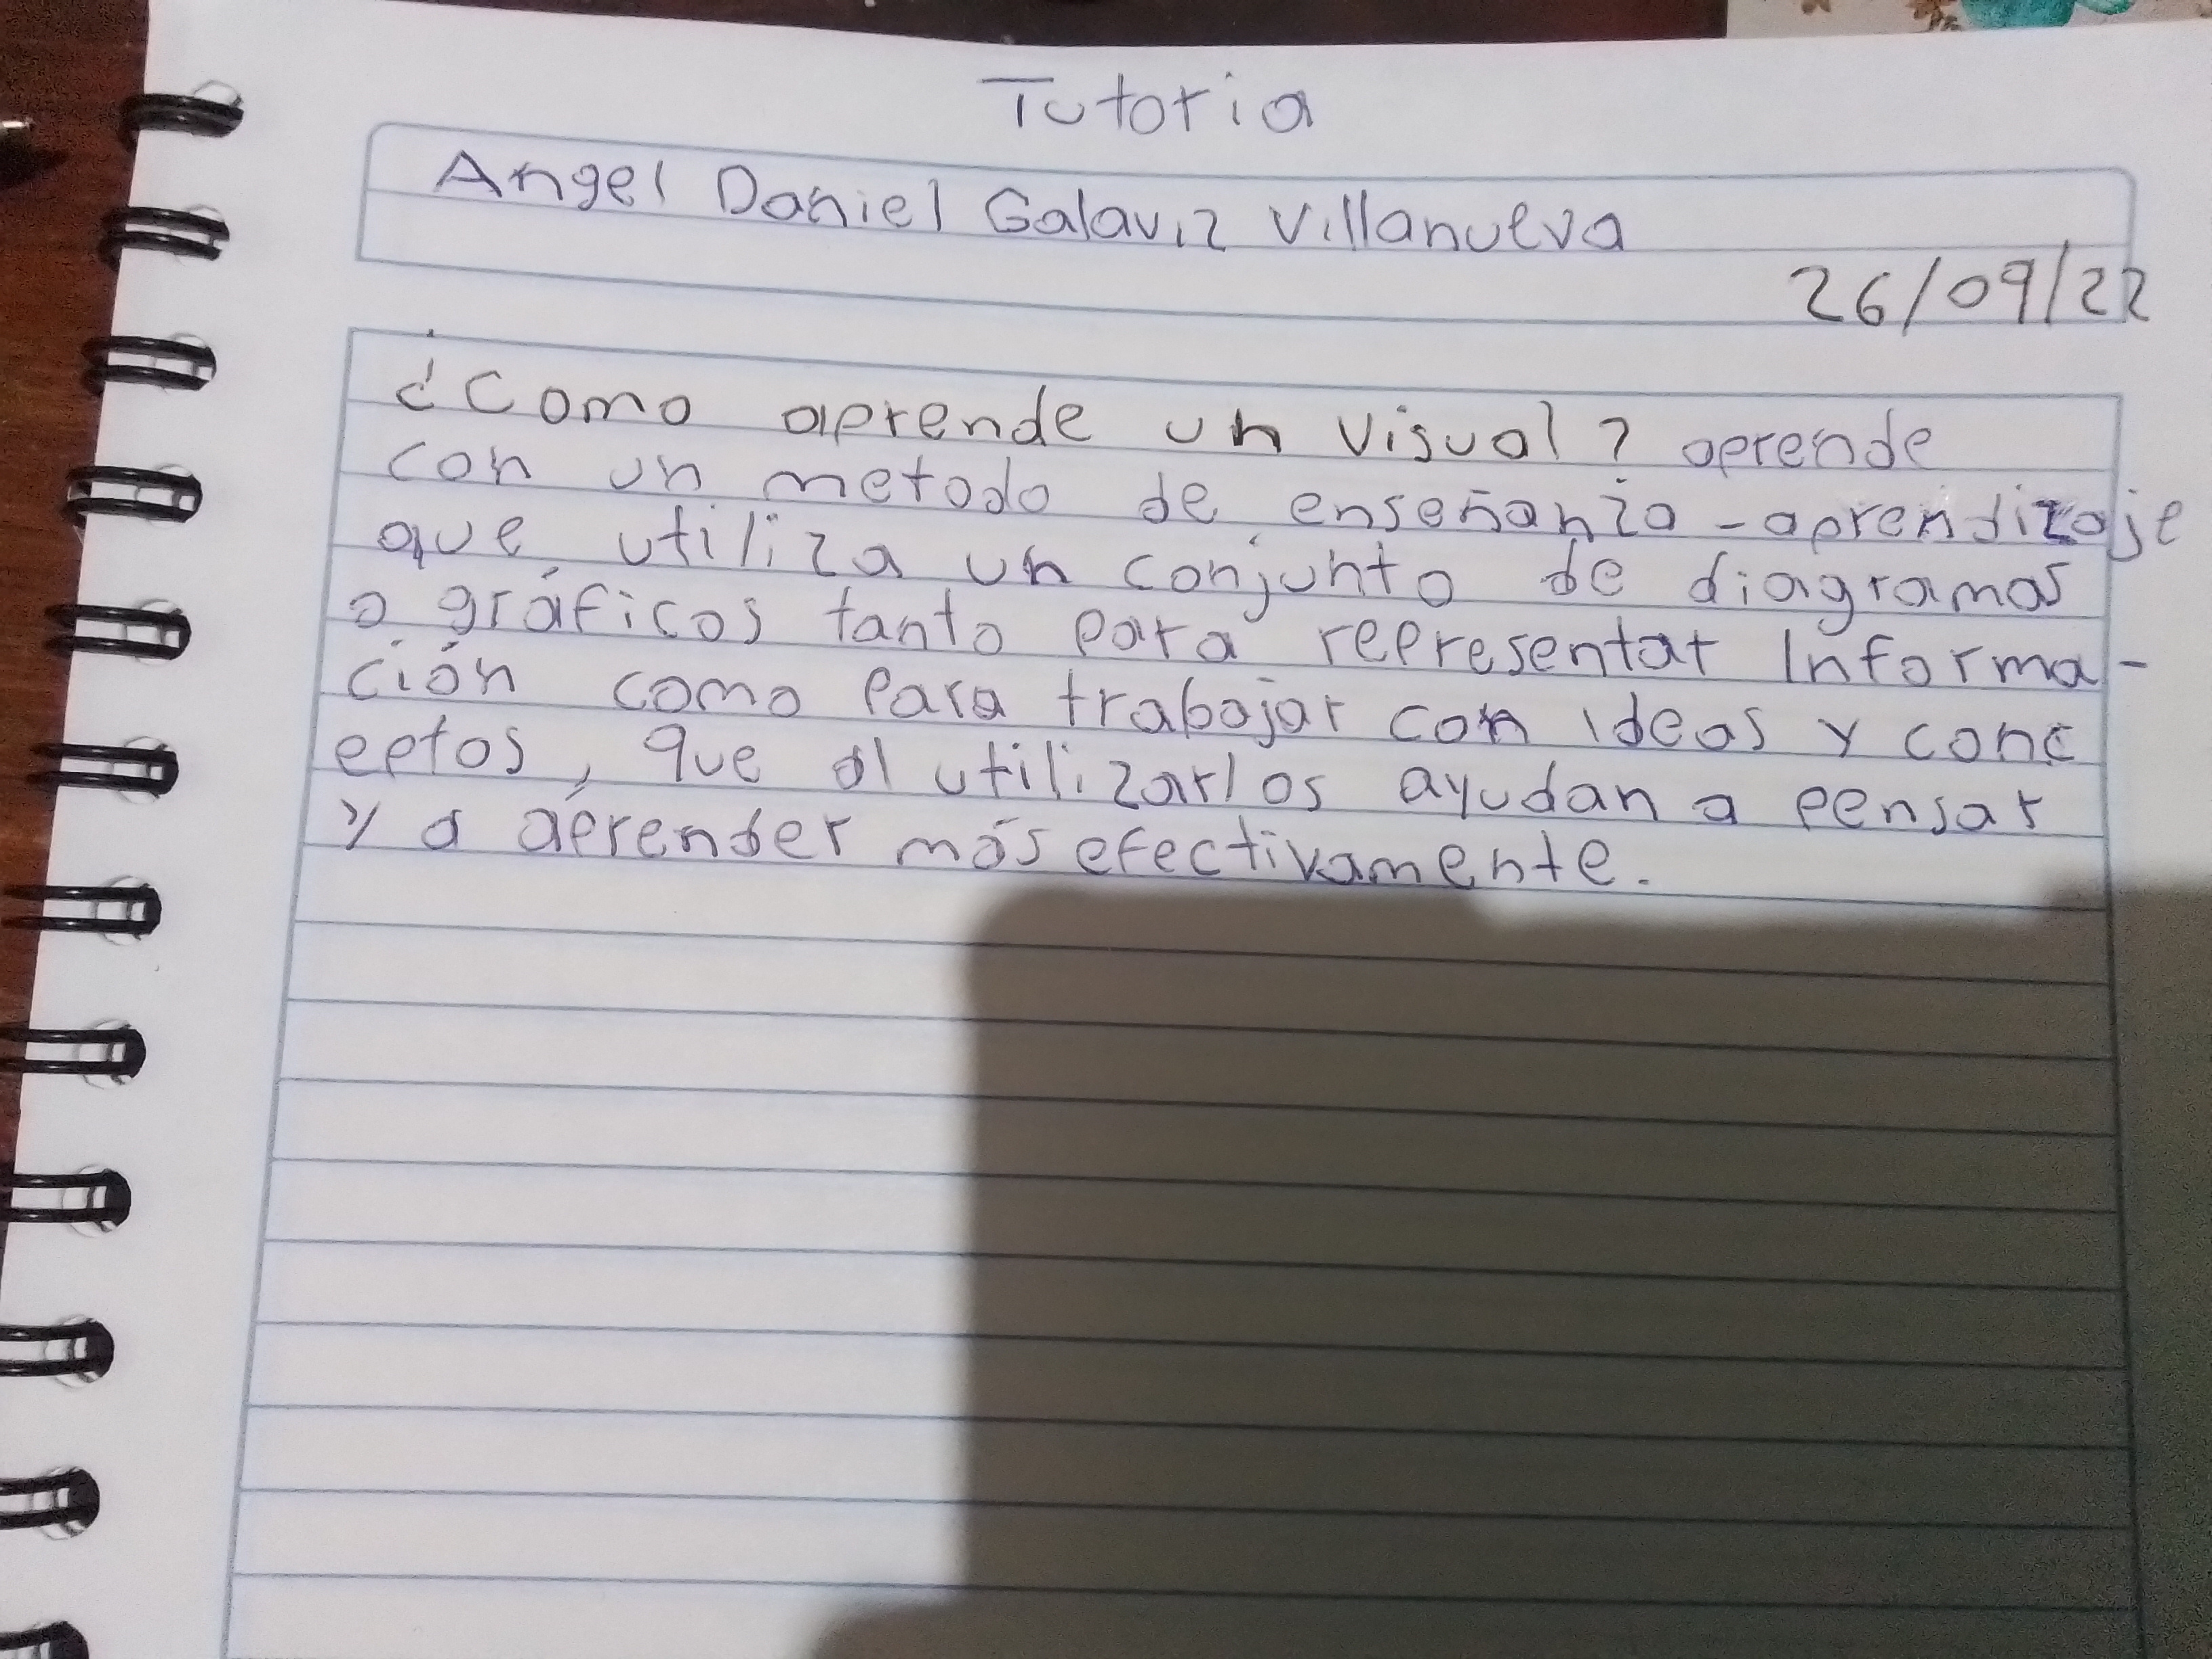 Tutoria
Angel Daniel Galaviz Villanueva
26/09/22
¿Como aprende un visual? aprende
con un metodo de enseñanza - aprendizaje
que utiliza un conjunto de diagramas
o gráficos tanto para representar informa-
ción como para trabajar con ideas y conc
eptos, que al utilizarlos ayudan a pensar
y a aprender más efectivamente.